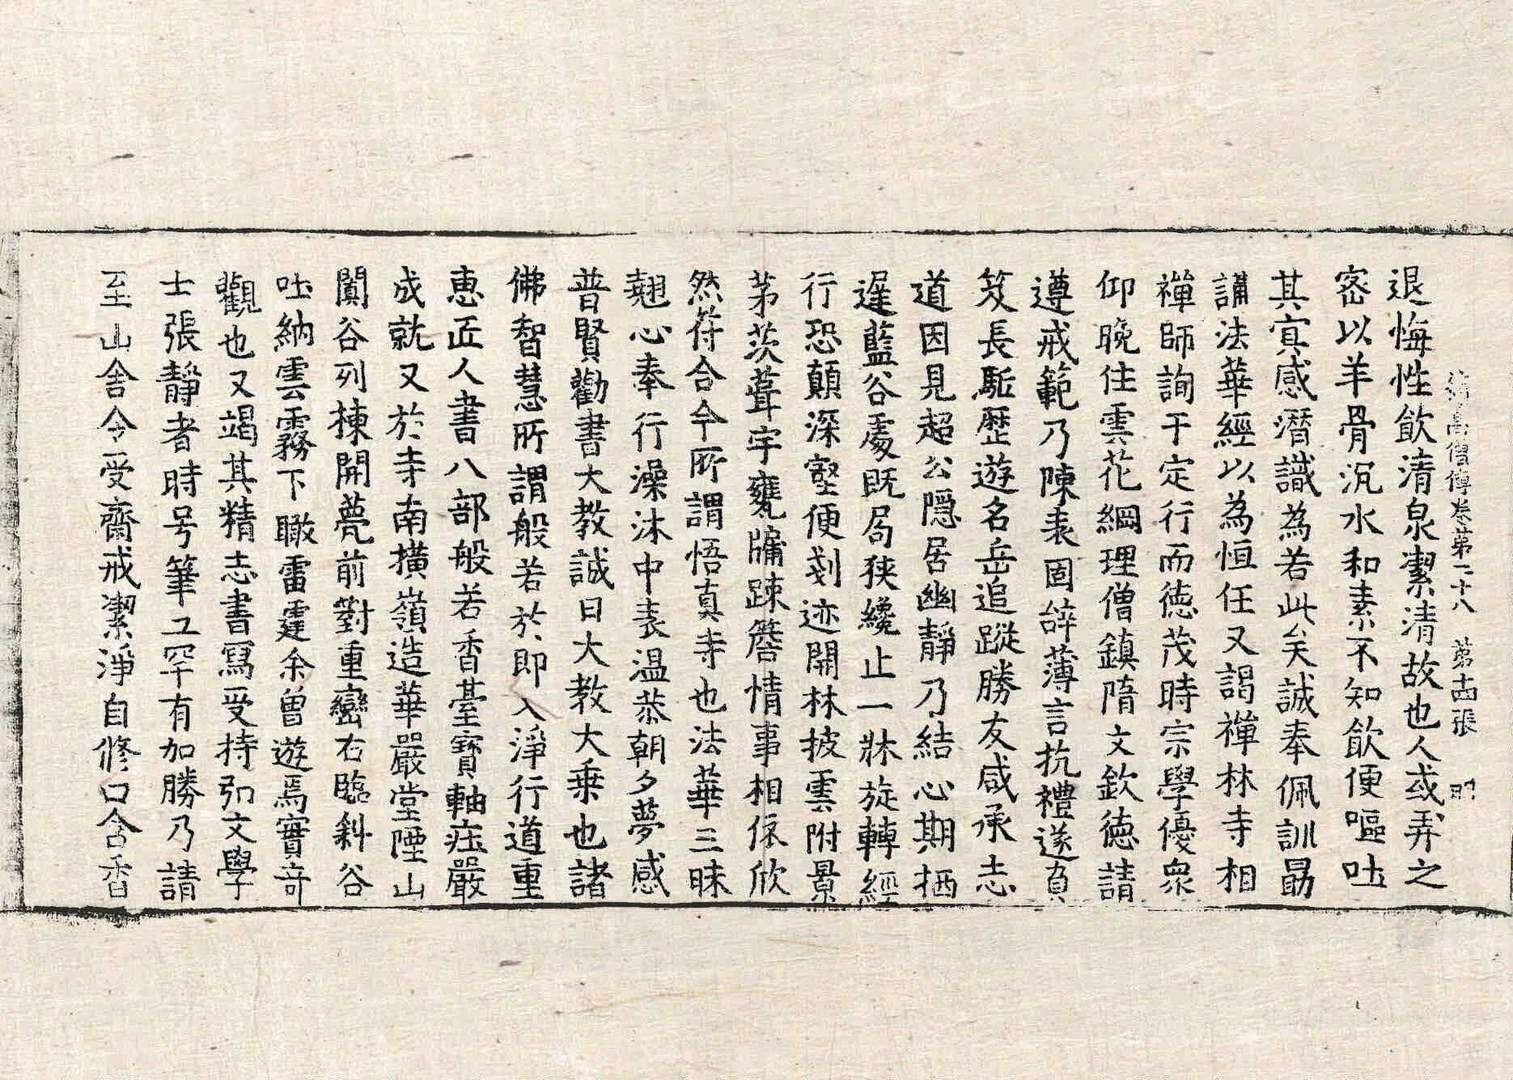 退悔性飲清泉潔清故也人或弄之
續高僧傳卷第二十八 第十四張
密以羊骨沉水和素不知飲便嘔吐
其㝠感潛識為若此矣誠奉佩訓勗
誦法華經以為恒任又謁禪林寺相
禪師詢于定行而德茂時宗學優眾
仰晚住雲花綱理僧鎮隋文欽德請
遵戒範乃陳表固辞薄言抗禮遂負
笈長駈歷遊名岳追蹤勝友咸承志
道因見超公隱居幽靜乃結心期栖
遲藍谷處既局狹纔止一牀旋轉經
行恐顛深壑便刬迹開林披雲附景
茅茨葺宇甕牖疎簷情事相依欣
然符合今所謂悟真寺也法華三昧
翹心奉行澡沐中表温恭朝夕夢感
普賢勸書大教誠曰大教大乗也諸
佛智慧所謂般若於即入淨行道重
惠匠人書八部般若香臺寳軸莊嚴
成就又於寺南撗嶺造華嚴堂陻山
闐谷列棟開甍前對重巒右臨斜谷
吐納雲霧下瞰雷霆余曾遊焉實奇
觀也又竭其精志書寫受持弘文學
士張靜者時号筆工罕有加勝乃請
至山舍令受齋戒潔淨自修口含香